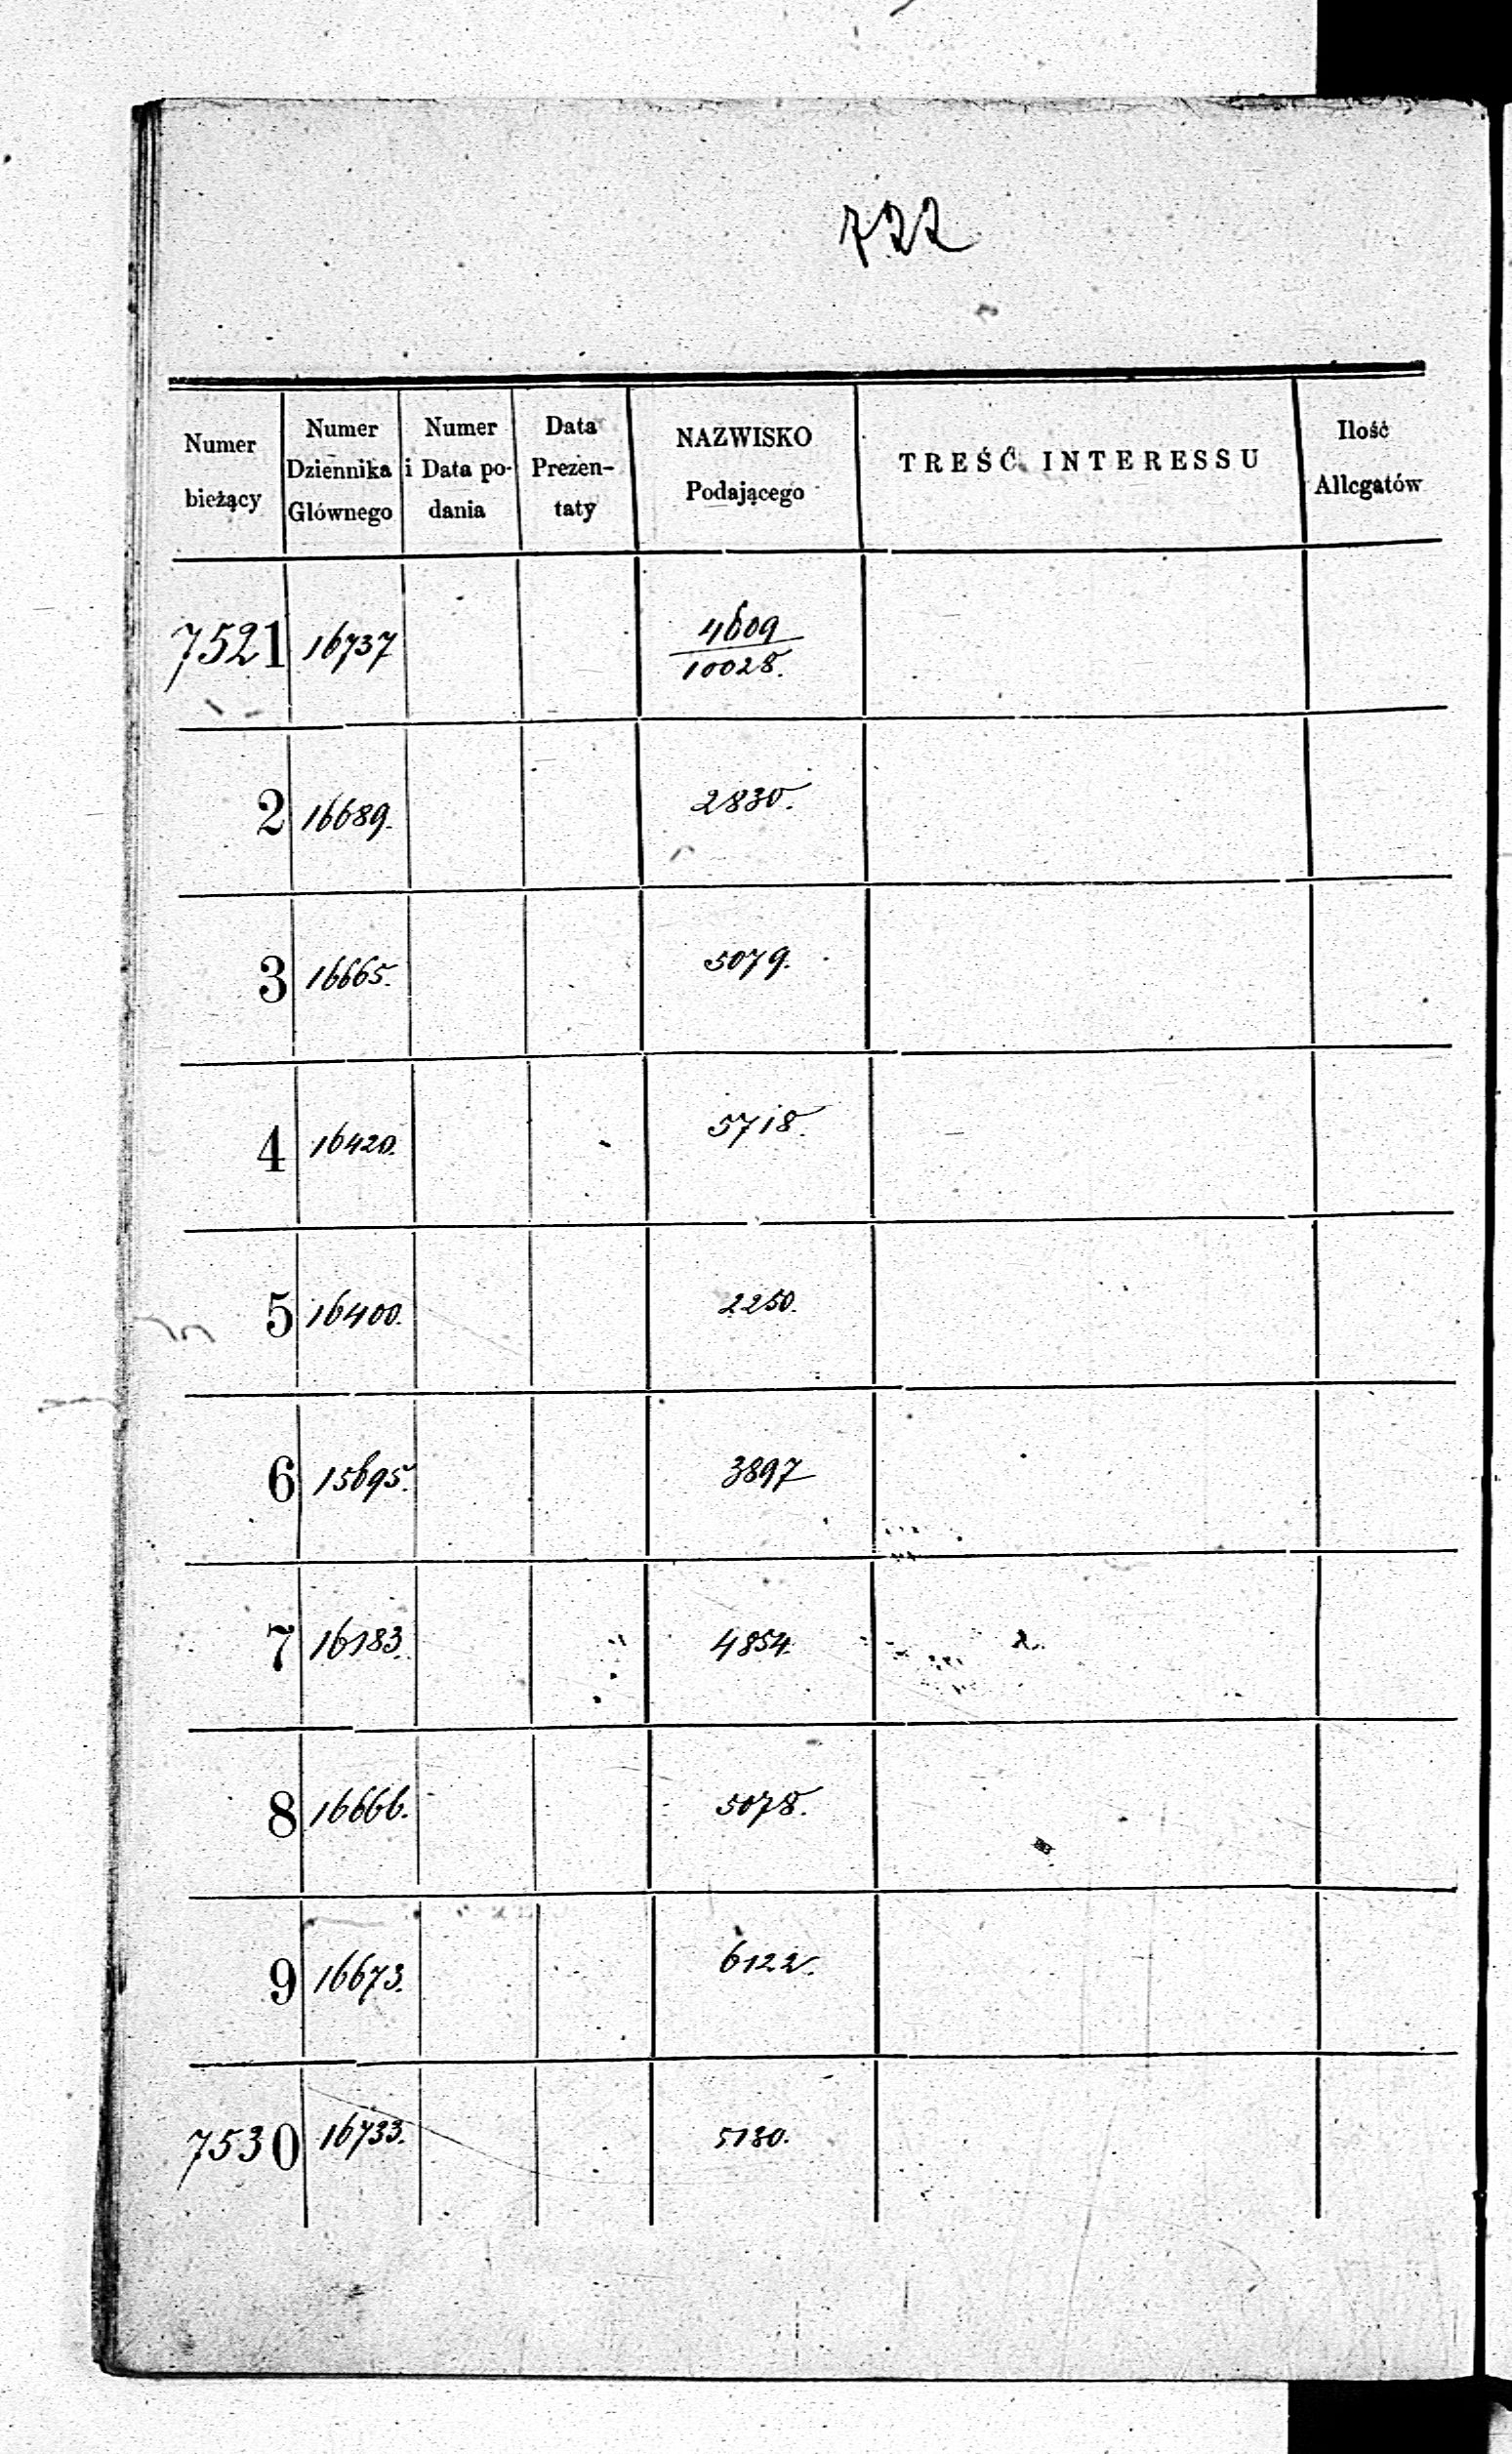 722
Numer bieżący
Numer Dziennika Głównego
Numer i Data podania
Data Prezentaty
NAZWISKO Podającego
TREŚĆ INTERESSU
Ilość Allegatów
7521 16737 4609
10028.
2 16689. 2830.
3 16665. 5079.
4 16420. 5718.
5 16400. 2250.
6 15695. 3897
7 16183. 4854.
8 16666. 5078.
9 16673. 6122.
7530 16733. 5130.